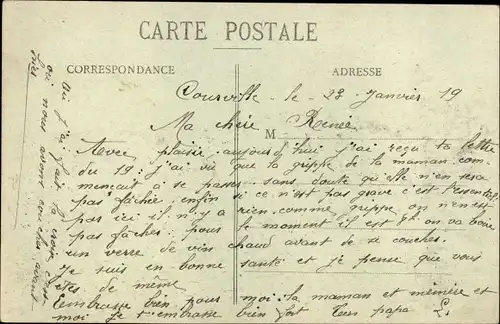 CARTE POSTALE
CORRESPONDANCE
ADRESSE
Courville le 28 Janvier 19
Ma chère Renée
M
Avec plaisir aujourd'hui j'ai reçu ta lettre
du 19: j'ai vu que la grippe de ta maman com
mençait à se passer sans doute qu'elle n'en sera
pas fâchée enfin si ce n'est pas grave c'est l'essentiel
par ici il n'y a rien comme grippe on n'en est
pas fâchés: pour le moment il est on va boire
un verre de vin chaud avant de se coucher.
Je suis en bonne santé et je pense que vous
êtes de même
Embrasse bien pour moi: ta maman et mémère et
moi je t'embrasse bien fort Ton papa L.
oui j'ai fait la croix c'est
où nous avons couché avant
hier